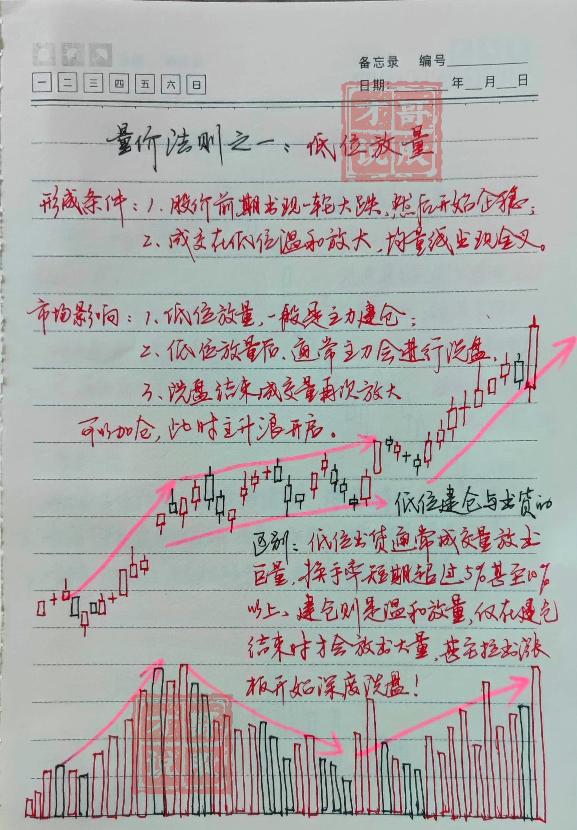 备忘录 编号
一 二 三 四 五 六 日
日期: 年 月 日
量价法则之一:低位放量
形成条件:1、股价前期出现一轮大跌,然后开始企稳;
2、成交在低位温和放大,均量线出现金叉。
市场影响:1、低位放量,一般是主力建仓;
2、低位放量后,通常主力会进行洗盘,
3、洗盘结束成交量再次放大
可以加仓,此时主升浪开启。
低位建仓与出货的
区别:低位出货通常成交量放出
巨量,换手率短期超过5%甚至10%
以上,建仓则是温和放量,仅在建仓
结束时才会放出大量,甚至拉出涨
板开始深度洗盘!